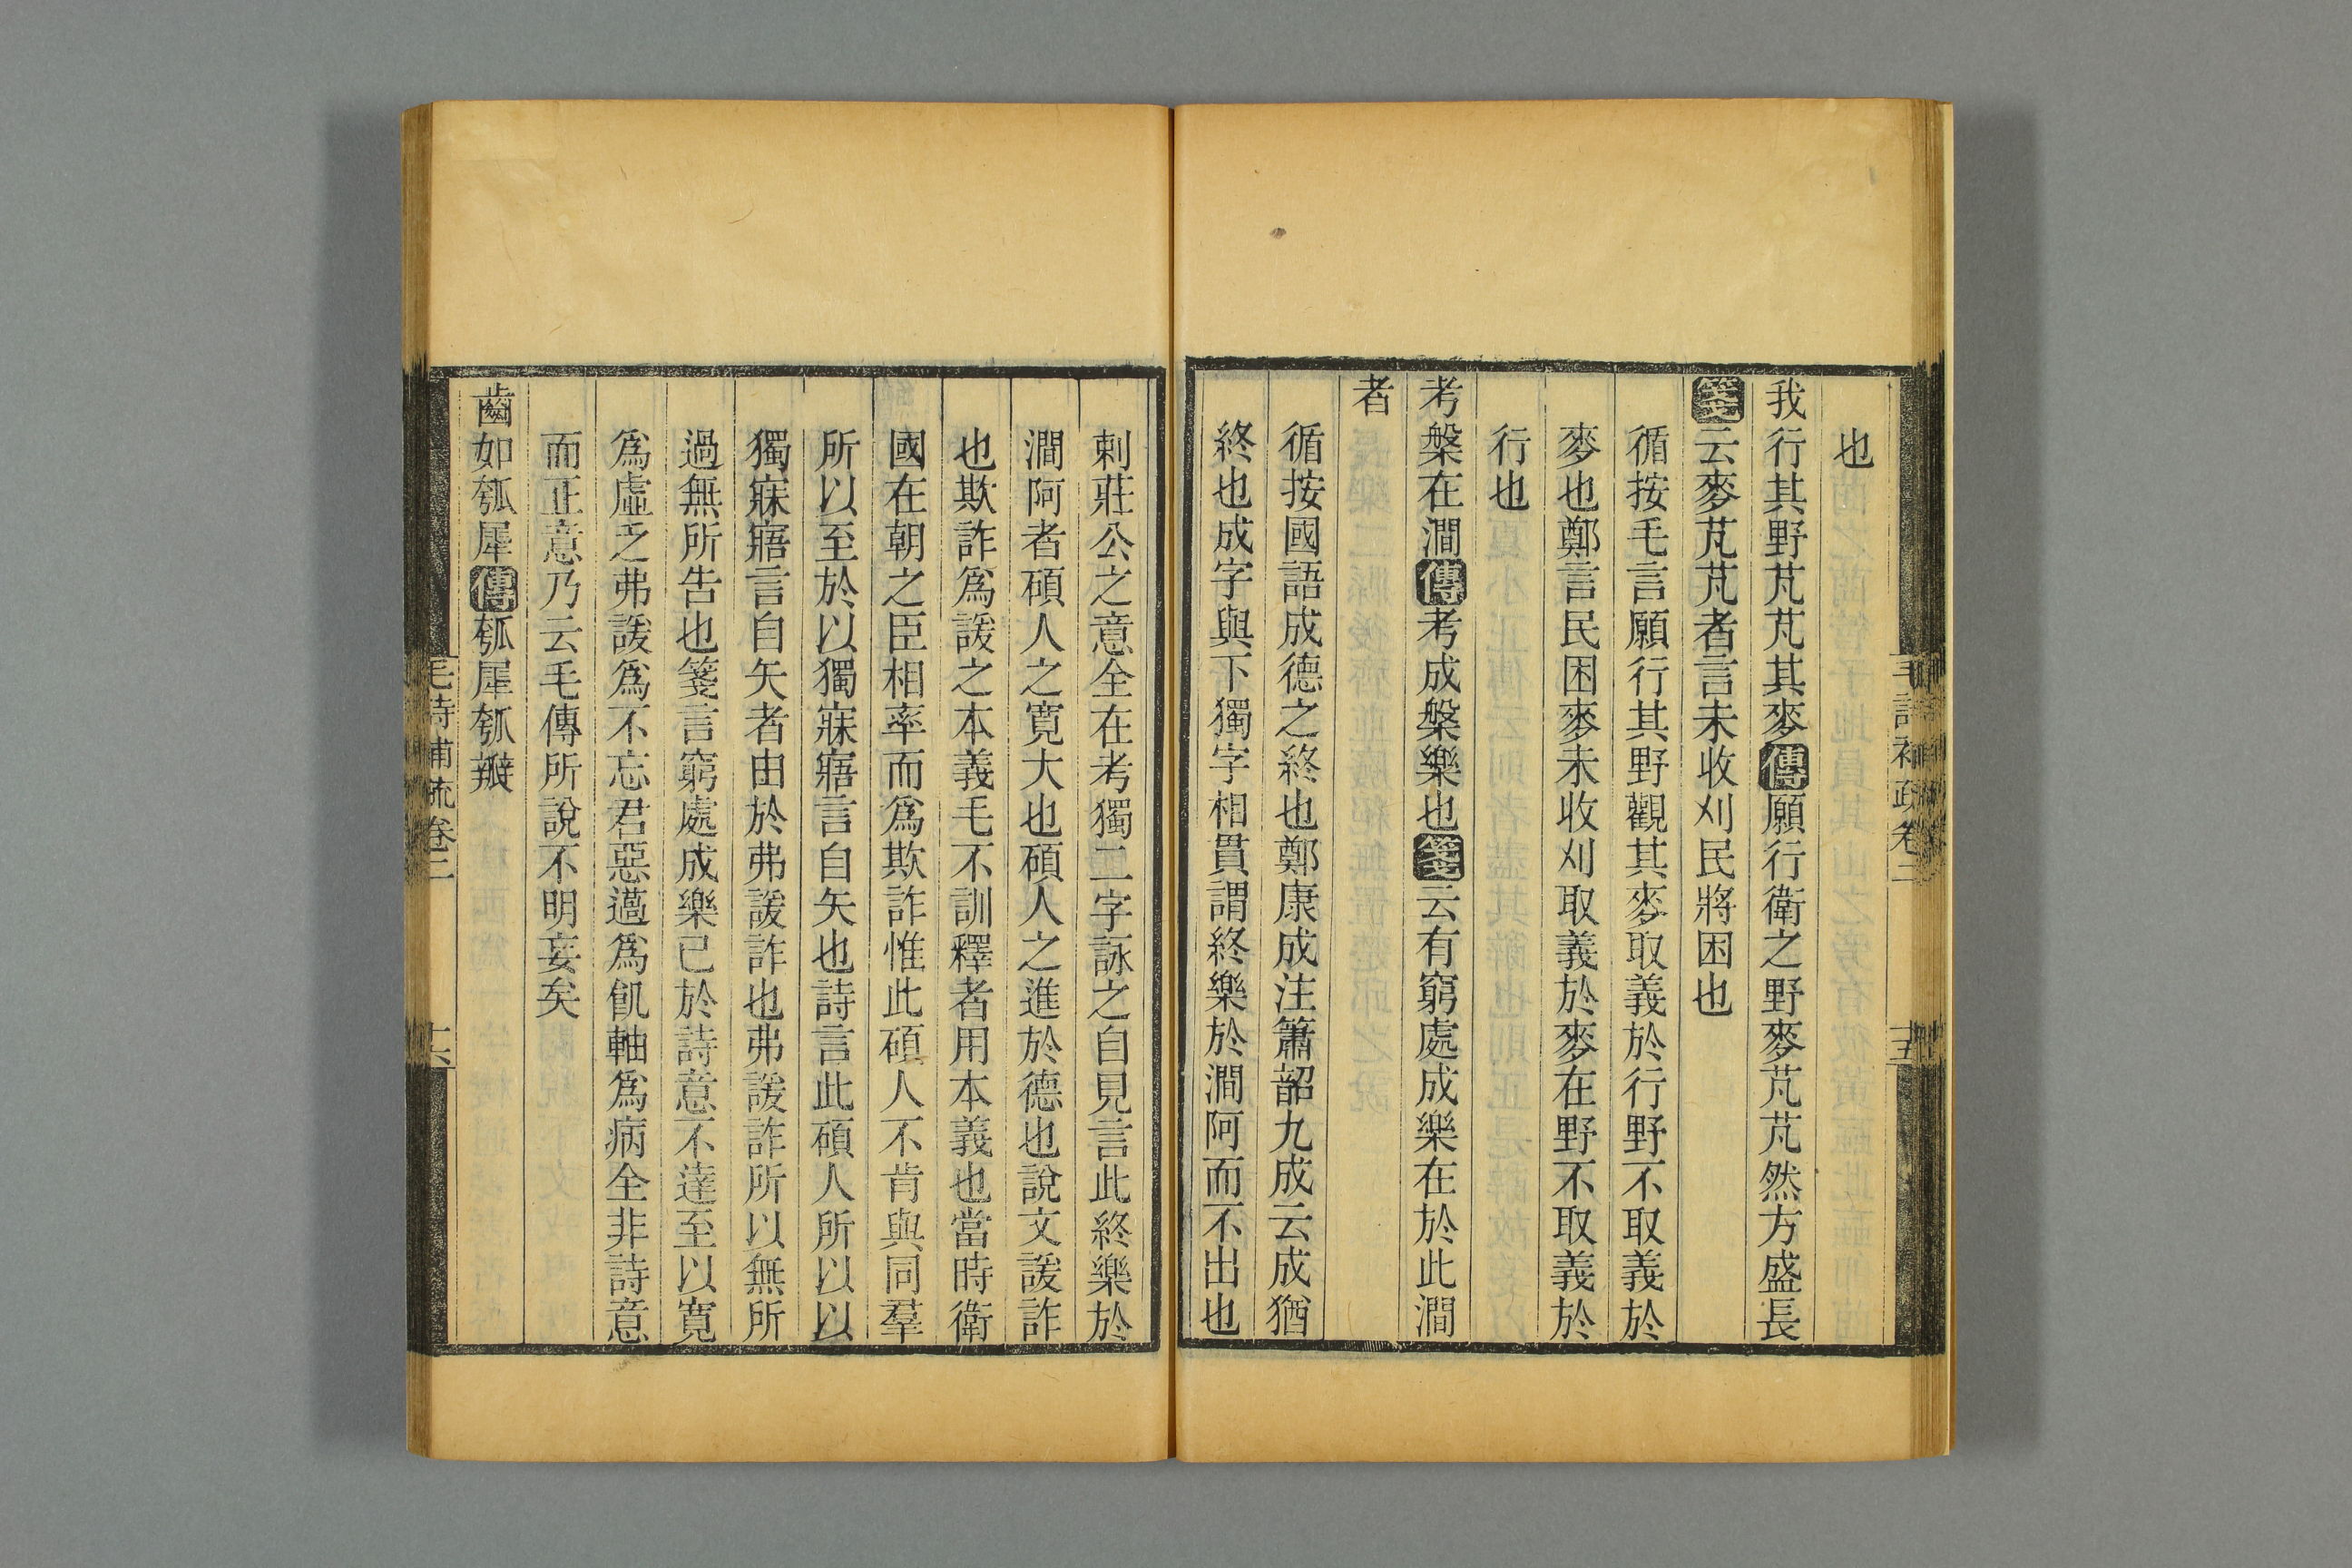 也
我行其野芃芃其麥傳願行衛之野麥芃芃然方盛長
箋云麥芃芃者言未收刈民將困也
循按毛言願行其野觀其麥取義於行野不取義於
麥也鄭言民困麥未收刈取義於麥在野不取義於
行也
考槃在澗傳考成槃樂也箋云有窮處成樂在於此澗
者
循按國語成德之終也鄭康成注簫韶九成云成猶
終也成字與下獨字相貫謂終樂於澗阿而不出也
刺莊公之意全在考獨二字詠之自見言此終樂於
澗阿者碩人之寬大也碩人之進於德也說文諼詐
也欺詐爲諼之本義毛不訓釋者用本義也當時衛
國在朝之臣相率而爲欺詐惟此碩人不肯與同羣
所以至於以獨寐寤言自矢也詩言此碩人所以以
獨寐寤言自矢者由於弗諼詐也弗諼詐所以無所
過無所告也箋言窮處成樂已於詩意不達至以寬
爲虛乏弗諼爲不忘君惡薖爲飢軸爲病全非詩意
而正意乃云毛傳所說不明妄矣
齒如瓠犀傳瓠犀瓠瓣
毛詩補疏卷二
十六